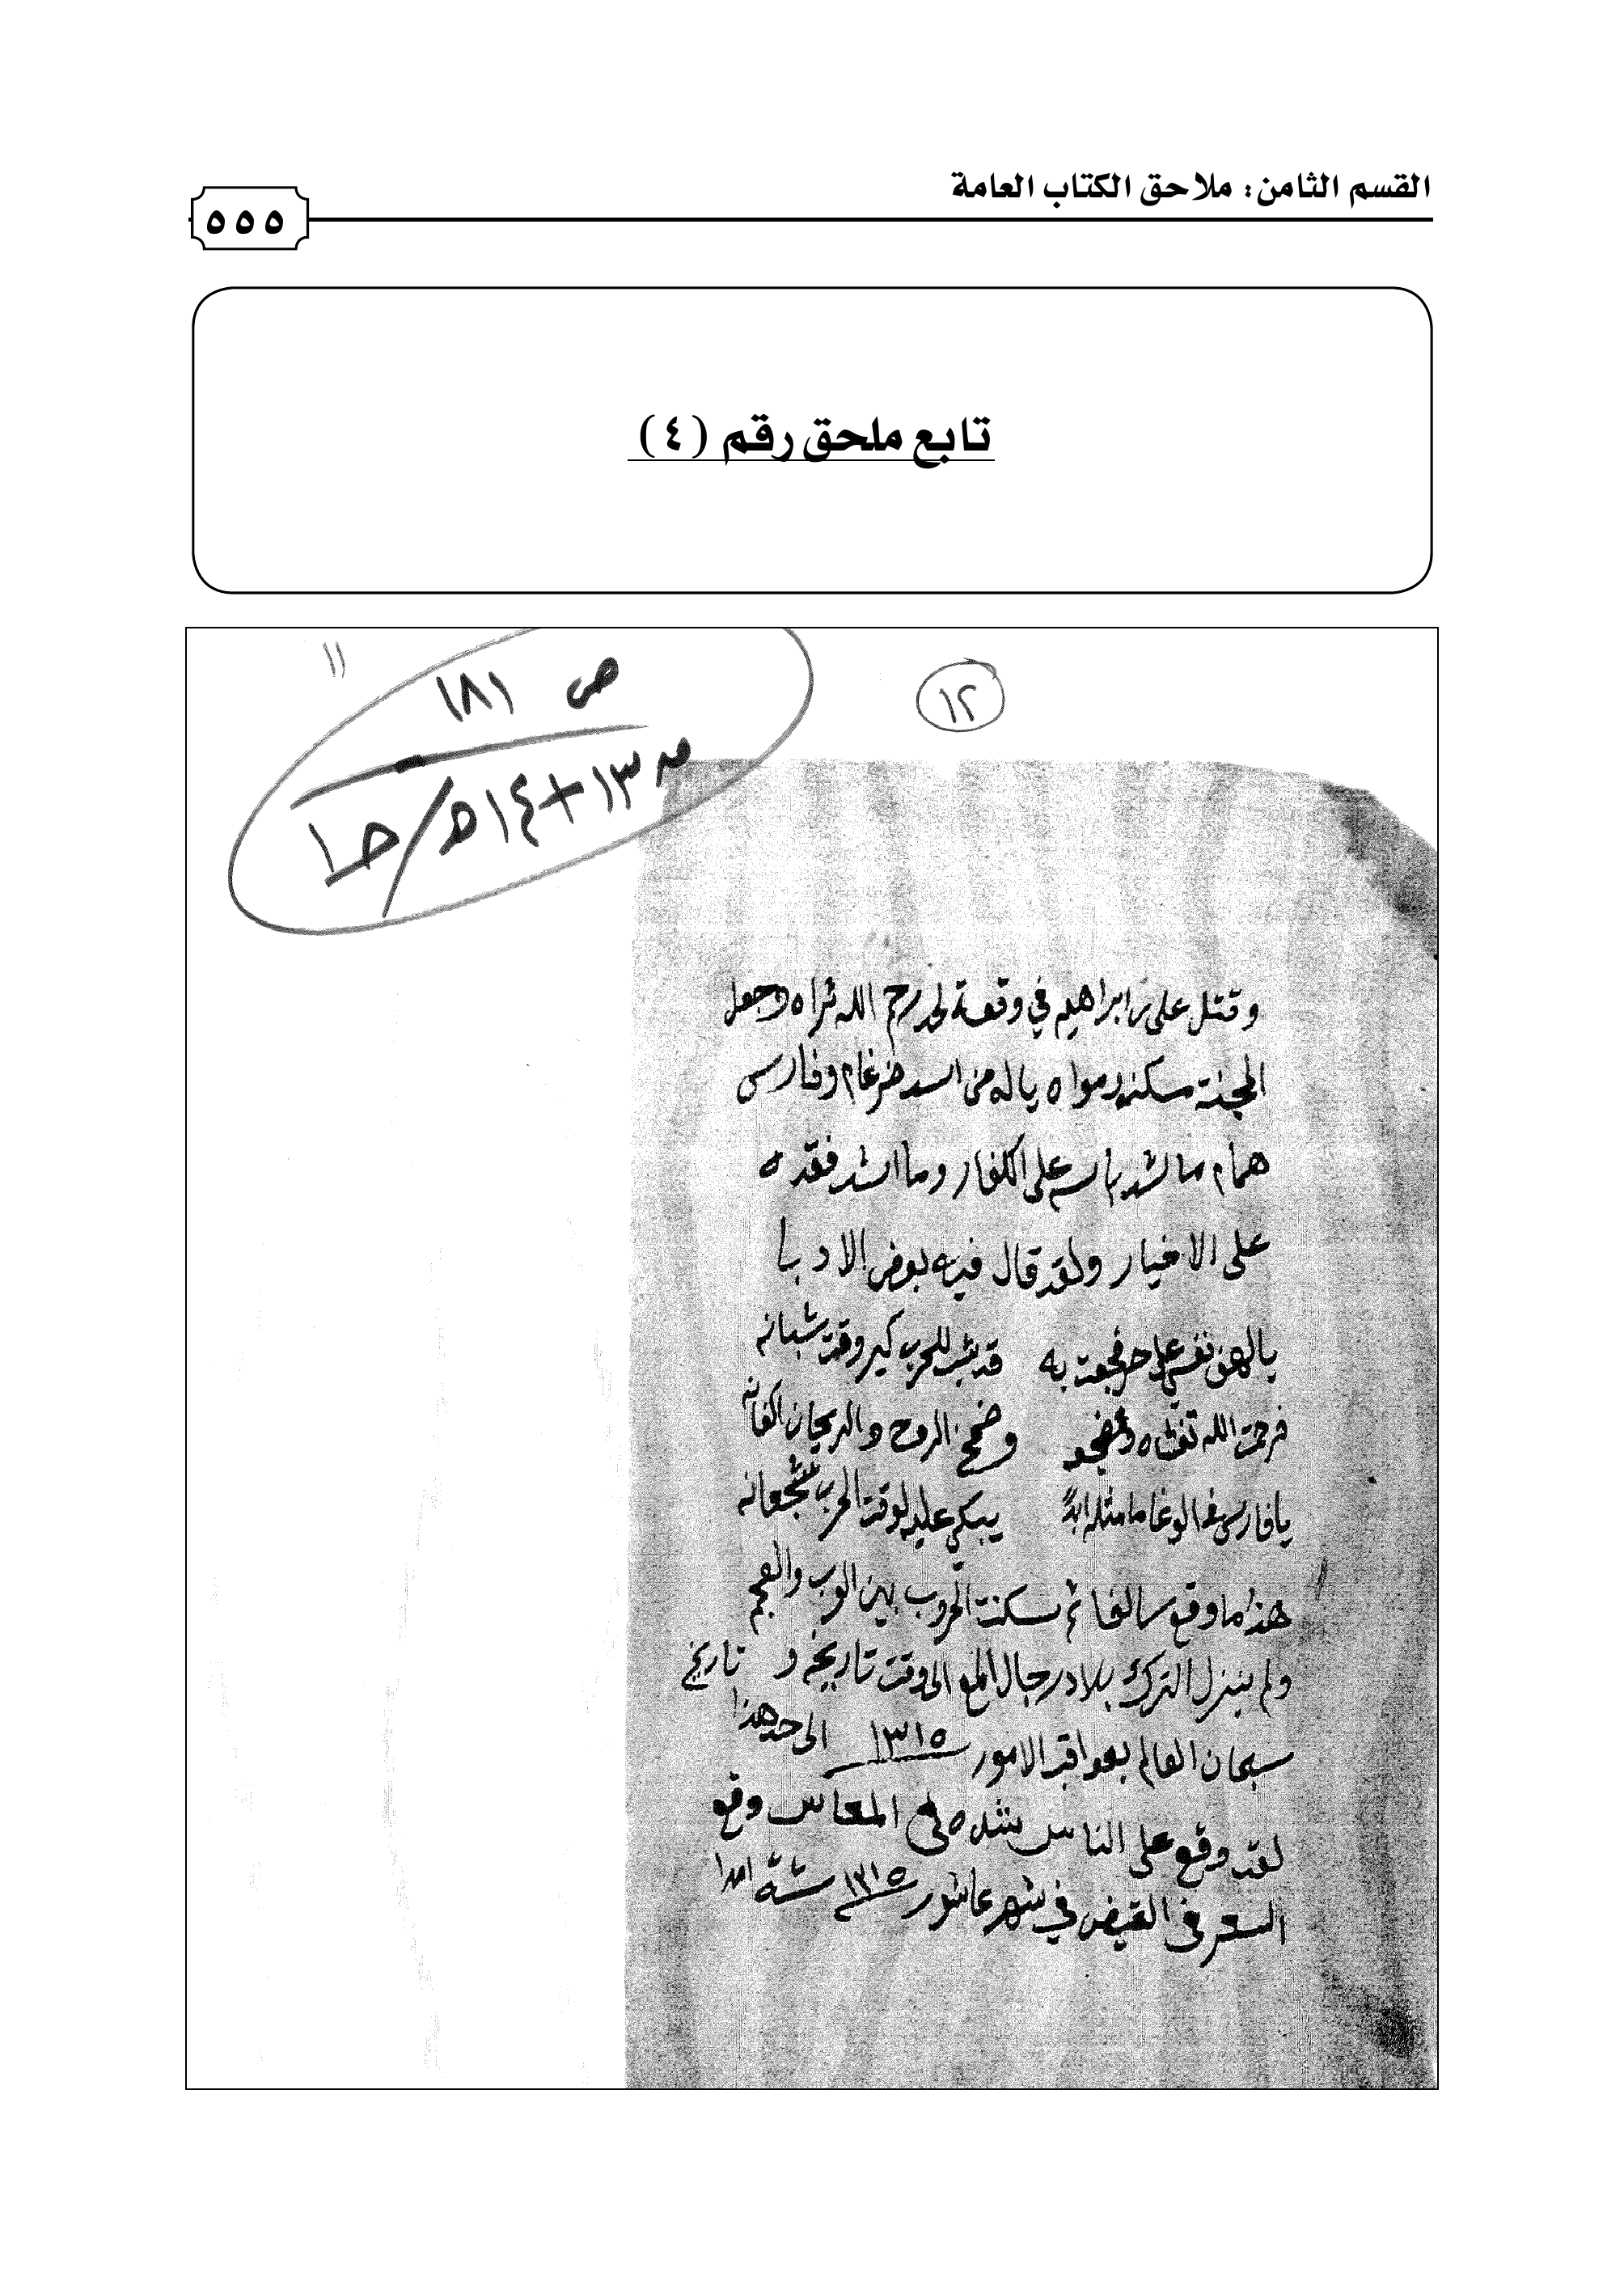 القسم الثامن: ملاحق الكتاب العامة
٥٥٥
تابع ملحق رقم (٤)
١٢
ص ١٨١
١٣+١٤هـ/حـ١
وقتل علي بن ابراهيم في وقعة رحم الله ثراه وجعل
الجنة سكنه ومواه ياله من اسد ضرغام وفارس
همام ما اشد باسه على الكفار وما اشد فقده
على الاخيار ولقد قال فيه بعض الادبا
يالهف نفسي على حر فجعت به قد شب للحرب كير وقت شبانه
فرحمت الله تغشاه ومضجعه وضمخ الروح والريحان اكفانه
يا فارس في الوغا ما مثله ابدً يبكي عليه لوقت الحرب شجعانه
هذا ما وقع ثم سكنت الحروب بين العرب والعجم
ولم ينزل الترك بلاد رجال المع الى وقت تاريخه و تاريخ
سبحان العالم بعواقب الامور ١٣١٥ الى حد هذا
لقد وقع على الناس شده في المعاس وقع
السعر في القيض في شهر عاشور ١٣١٥ ستة امدا